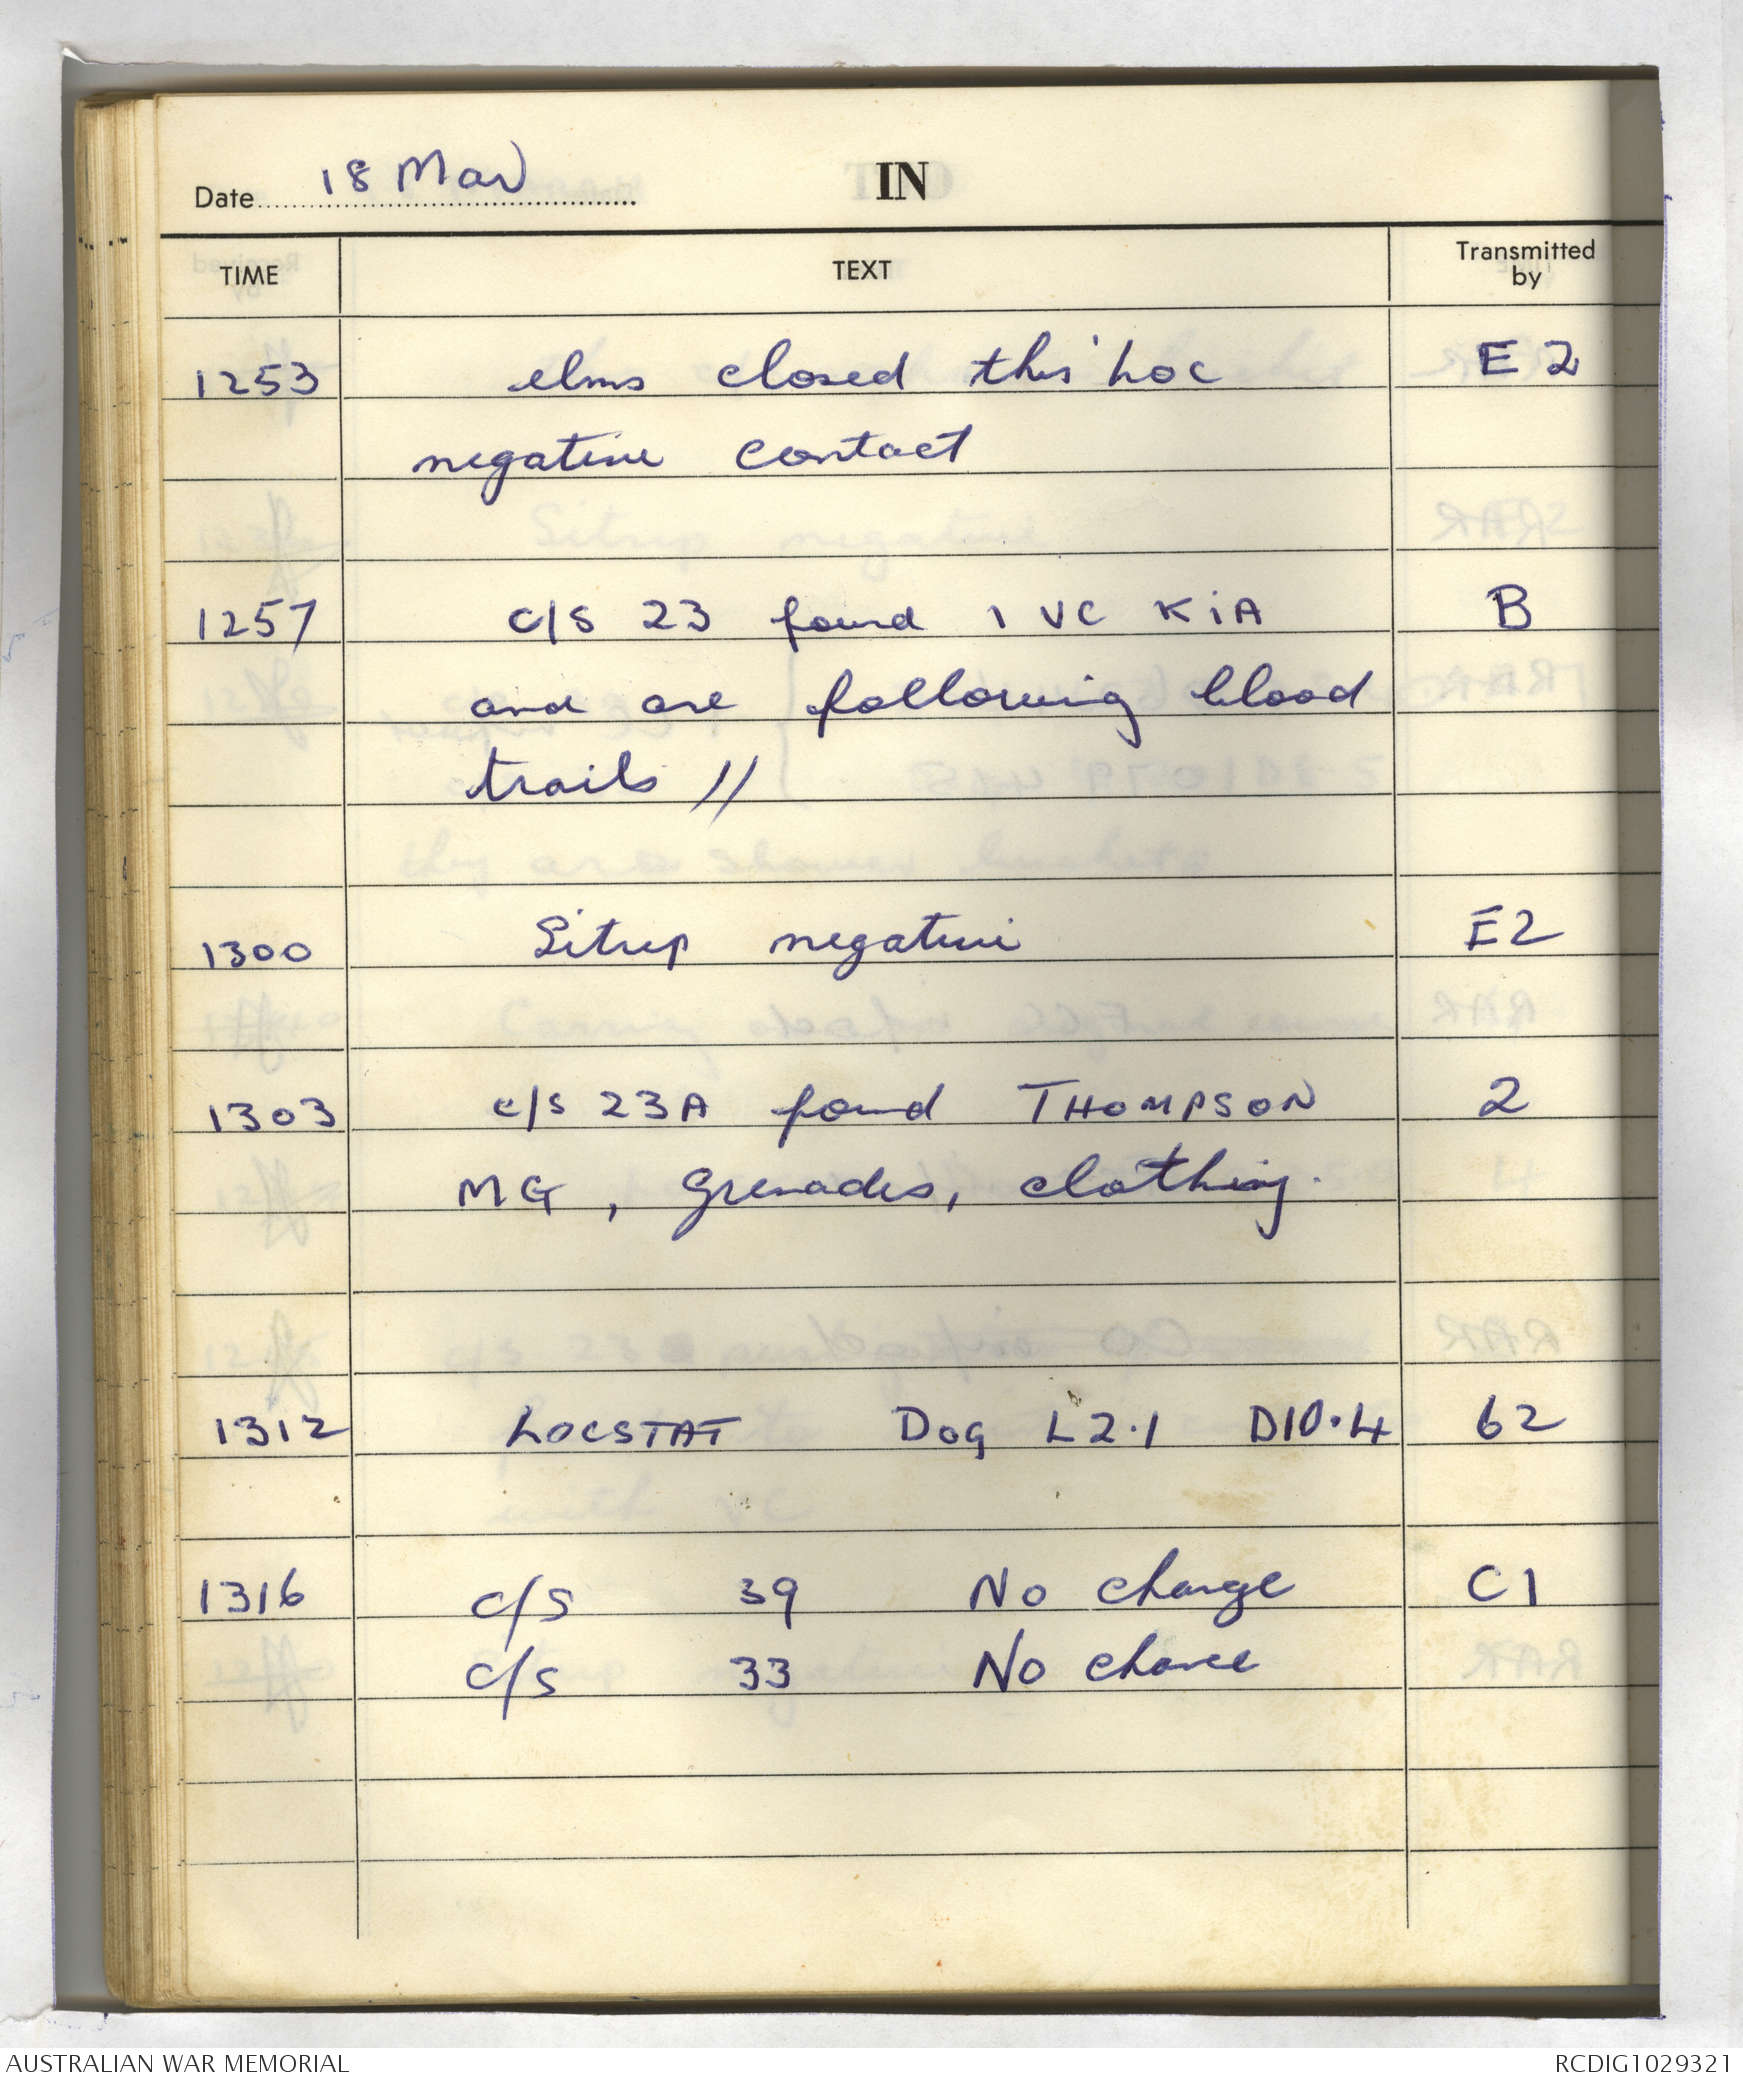 Date 18 Mar IN
TIME TEXT Transmitted by
1253 elms closed this loc E2
negative contact
1257 c/s 23 found 1 VC KiA B
and are following blood
trails //
1300 Sitrep negative E2
1303 c/s 23A found THOMPSON 2
MG, grenades, clothing.
1312 LOCSTAT Dog L2.1 D10.4 62
1316 c/s 39 No change C1
c/s 33 No chance
AUSTRALIAN WAR MEMORIAL RCDIG1029321